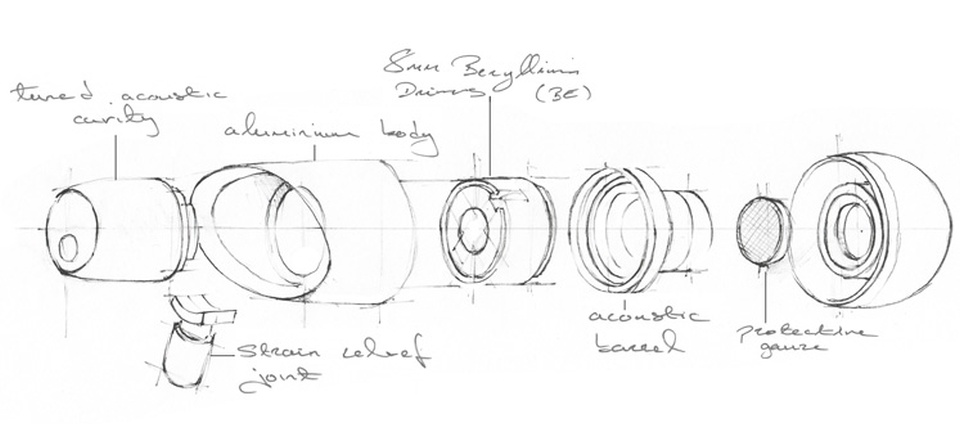 8mm Beryllium
Drivers (BE)
tuned acoustic
cavity
aluminium body
acoustic
barrel
protective
gauze
strain relief
joint